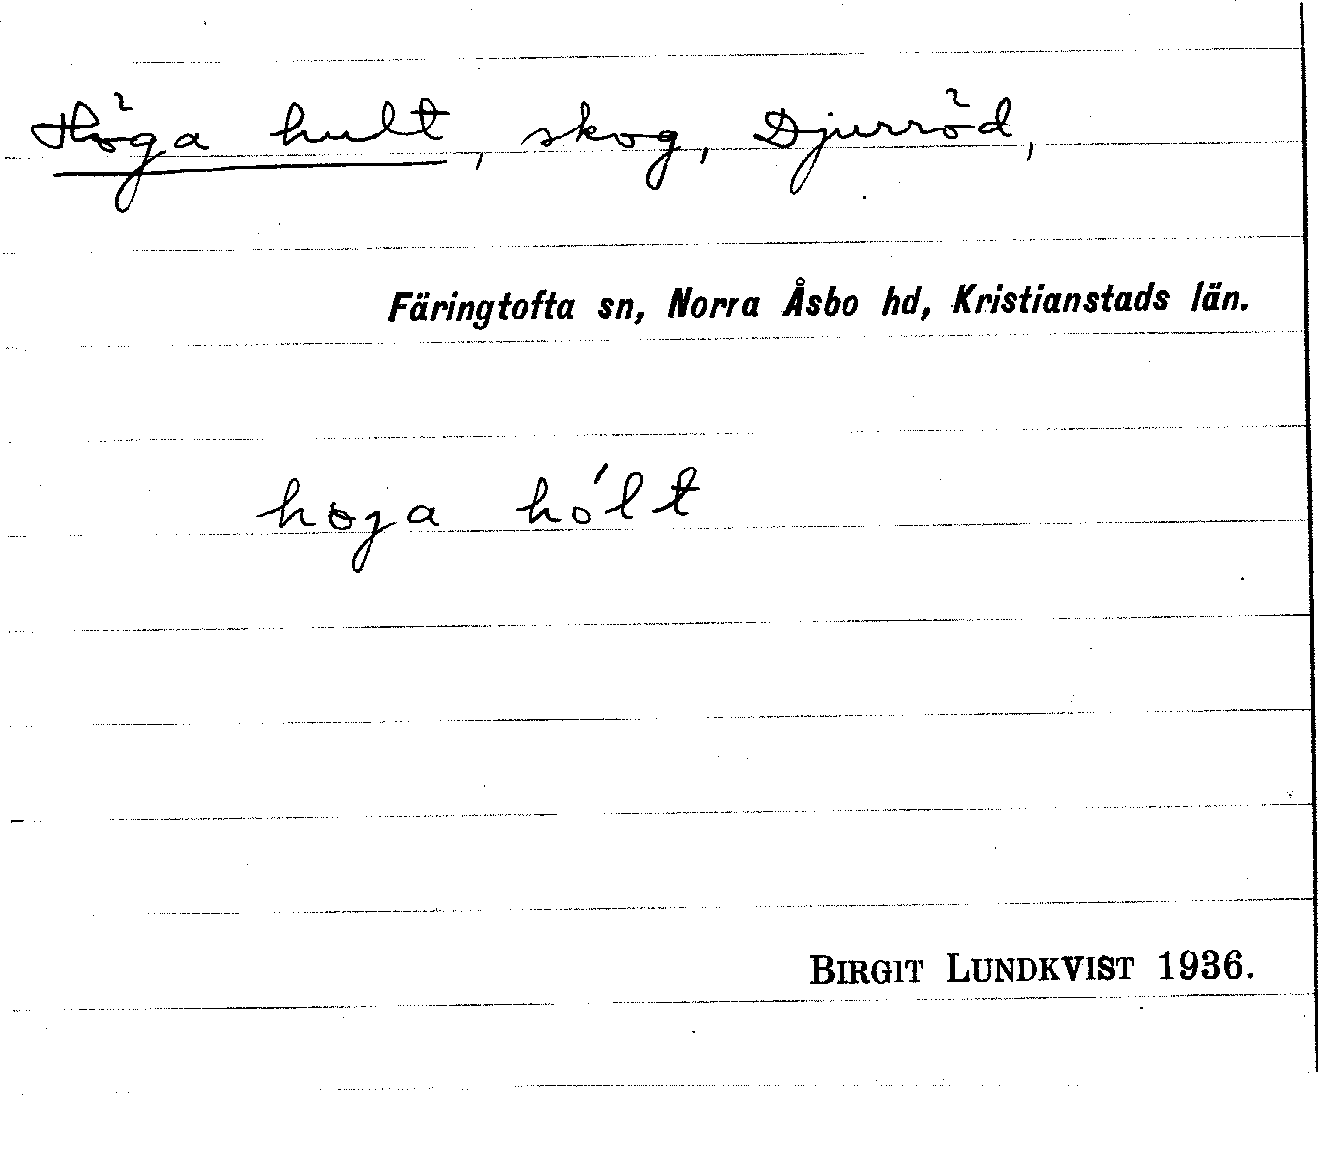 Höga hult, skog, Djurröd,
Färingtofta sn, Norra Åsbo hd, Kristianstads län.
høga hólt
BIRGIT LUNDKVIST 1936.